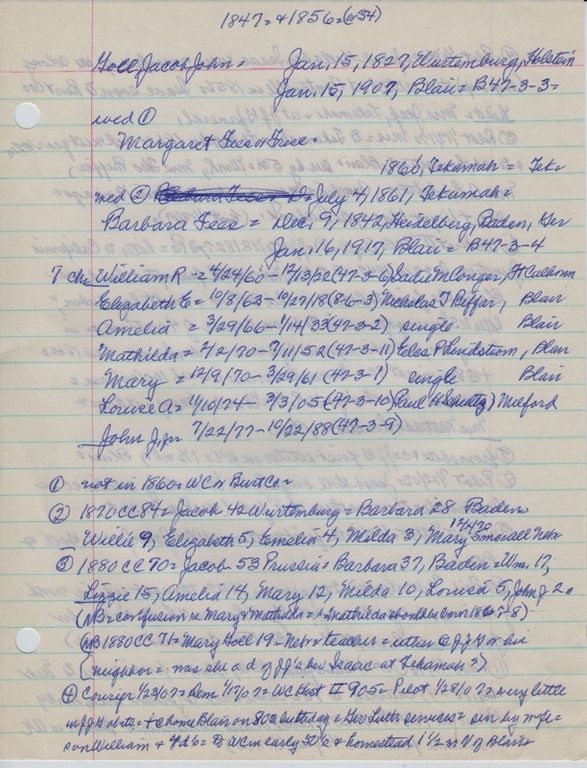 1847 = & 1856 = (or 54)
Goll, Jacob John = Jan. 15, 1827, Wurtemburg, Holstein
Jan. 15, 1907, Blair = B47-3-3 =
wed ①
Margaret Fees or Frese.
1860, Tekamah = Tek=
wed ② = July 4, 1861, Tekamah =
Barbara Fees = Dec. 9, 1842, Heidelberg, Baden, Ger
Jan. 16, 1917, Blair = B47-3-4
7 ch William R = 4/24/60 - 12/13/22 (47-3-6) Sadie McConger, Ft Calhoun
Elizabeth E = 10/8/63 - 10/27/18 (8-6-3) Nicholas T Biffar, Blair
Amelia = 3/29/66 - 1/14/33 (47-3-2) single. Blair
Mathilda = 2/2/70 - 7/11/52 (47-3-11) P Lundstrom, Blair
Mary = 12/9/70 - 3/29/61 (47-3-1) single Blair
Louise A = 1/10/74 - 3/3/05 (47-3-10) Paul H Milford
John J, jr 7/22/77 - 10/22/88 (47-3-9)
① not in 1860 = WC or Burt Co =
② 1870 CC 84 = Jacob 42 Wurtemburg = Barbara 28 Baden
Willie 9, Elizabeth 5, Emelia 4, Milda 3, Mary all Nebr
③ 1880 CC 70 = Jacob 53 Prussia = Barbara 37, Baden = Wm. 17,
Lizzie 15, Amelia 14, Mary 12, Milda 10, Louisa 5, John J 2 =
(NB = confusion re Mary & Mathilda = Mathilda should be born 1867-8)
(NB 1880 CC 71 = Mary Goll 19 = Nebr teacher =
(neighbor = was she a d of Isaac at Tekamah?)
④ Courier 1/23/07 = 1/17/07 = WC Hist II 905 = Pilot 1/23/07 = very little
= + @ home Blair on 80th birthday = Ger Luth services = sur by wife =
son William & 4 d's = WC in early 50's & homestead 1 1/2 m N of Blair